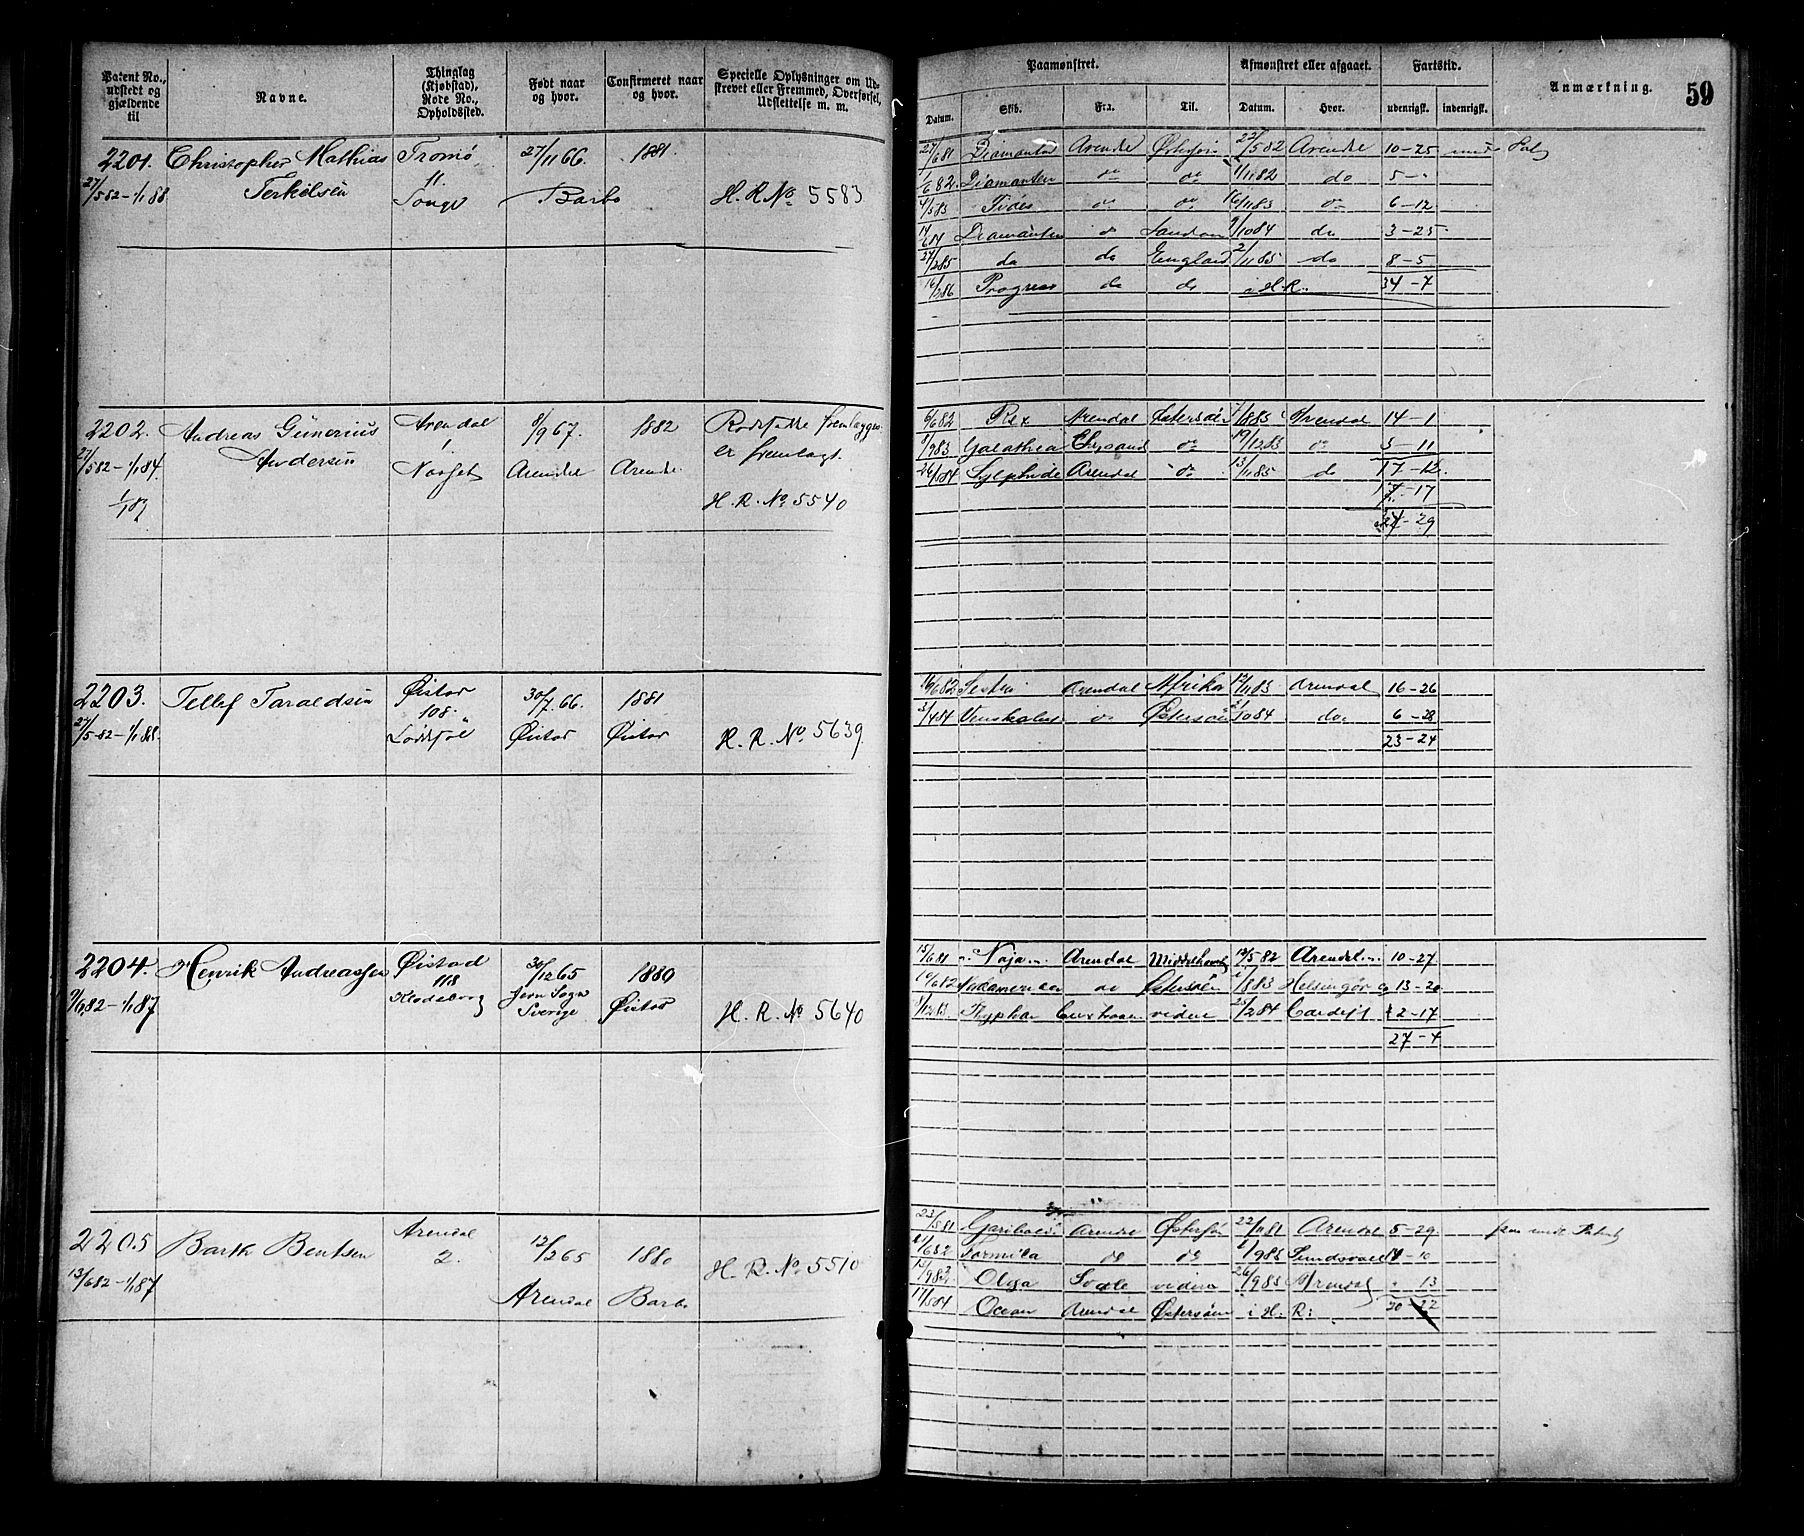 Patent No., udstedt og gjældende til
Navne.
Thinglag (Kjøbstad), Rode No., Opholdssted.
Født naar og hvor.
Confirmeret naar og hvor.
Specielle Oplysninger om Udskrevet eller Fremmed, Overførsel, Udslettelse m. m.
Paamønstret.
Afmønstret eller afgaaet.
Fartstid.
Anmærkning.
59
Datum.
Skib.
Fra.
Til.
Datum.
Hvor.
udenrigsk.
indenrigsk.
2201. Christopher Mathias Tromø 27/11 66. 1881.
27/5 82 - 1/1 88 Terkelsen 11. Songe Barbo H. R. No 5583
27/6 81 Diamanten Arendal 22/5 82 Arendal 10-25
1/6 82. Diamanten do do 1/11 82 do 5-
4/5 83 Tides do do 16/11 83 do 6-12
14/6 84 Diamanten do 9/10 84 do 3-25
27/2 85 do do England 2/11 85 do 8-5
16/2 86 Progress do do i H.R. 34-7
2202. Andreas Gunerius Arendal 8/9 67. 1882
27/5 82 - 1/1 84. Andersen 1 Arendal Arendal er fremlagt
1/1 87
H. R. No 5540
6/6 82 Rex Arendal Østersøen 1/8 83 Arendal 14-1
8/9 83 Galathea Chrsand do 19/12 83 do 3-11
26/1 84 Sylphide Arendal do 13/11 85 do 17-12
17-17
-29
2203. Tellef Taraldsen Øistad 30/7 66. 1881
27/5 82 - 1/1 88. 108. Øistad Øistad H. R. No 5639
16/6 82 Arendal Afrika 12/11 83 Arendal 16-26
3/4 84 do Østersøen 10 84 do 6-28
23-24
2204. Henrik Andreassen Øistad 30/12 65 1880
9/6 82 - 1/1 87 118 Klodeborg Jern Sogn Sverige Øistad H. R. No 5640
15/6 81 Naja Arendal Middelhavet 19/5 82 Arendal 10-27
19/6 82 do Østersøen 8 83 Helsingør 13-20
8/12 83 Cuxhaven videre 25/2 84 Cardiff 2-17
27-4
2205 Barth Bentsen Arendal 12/2 65 1880
13/6 82 - 1/1 87 2. Arendal Barbo H. R. No 5510
23/5 81 Garibaldi Arendal Østersøen 22/11 81 Arendal 5-29
6 82 do do 9 83 Sundsvall 10
15/9 83 Olga videre 26/9 83 Arendal 13
17/5 84 Ocean Arendal Østersøen i H. R: 20-22